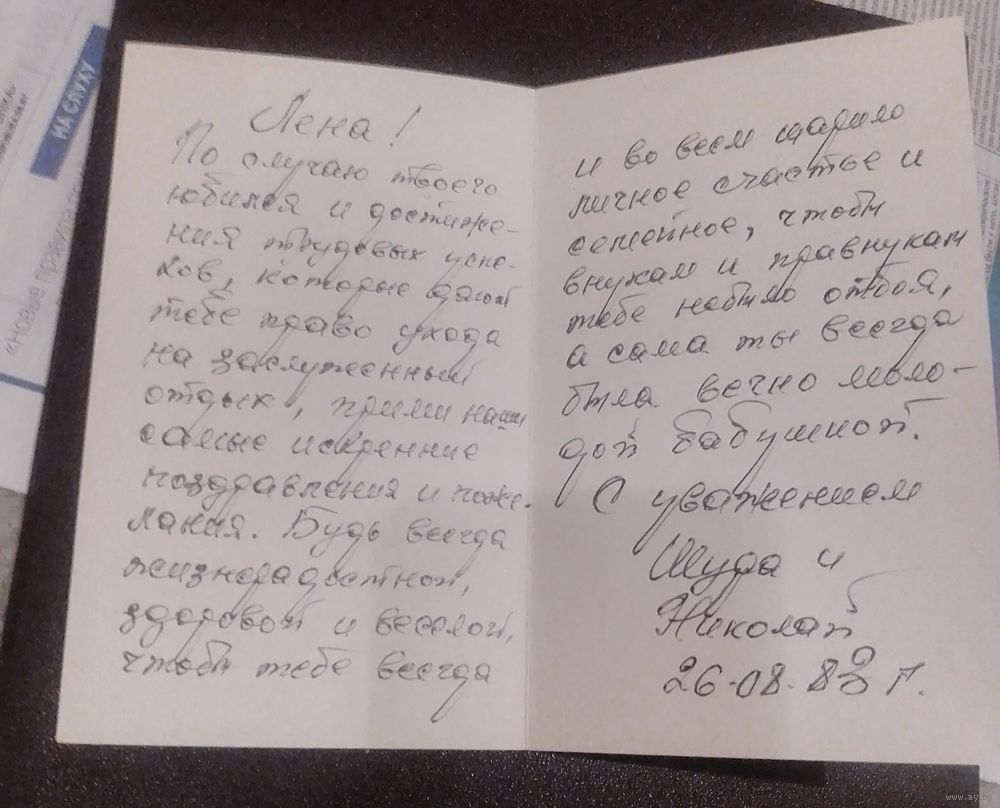 НА СЛУХУ
«Новые правила
Лена!
По случаю твоего
юбилея и достиже-
ния трудовых успе-
хов, которые дают
тебе право ухода
на заслуженный
отдых, прими наши
самые искренние
поздравления и поже-
лания. Будь всегда
жизнерадостной,
здоровой и веселой,
чтобы тебе всегда
и во всем
личное счастье и
семейное, чтобы
внукам и правнукам
тебе небыло отбоя,
а сама ты всегда
была вечно моло-
дой бабушкой.
С уважением
Шура и
Николай
26-08-88 г.